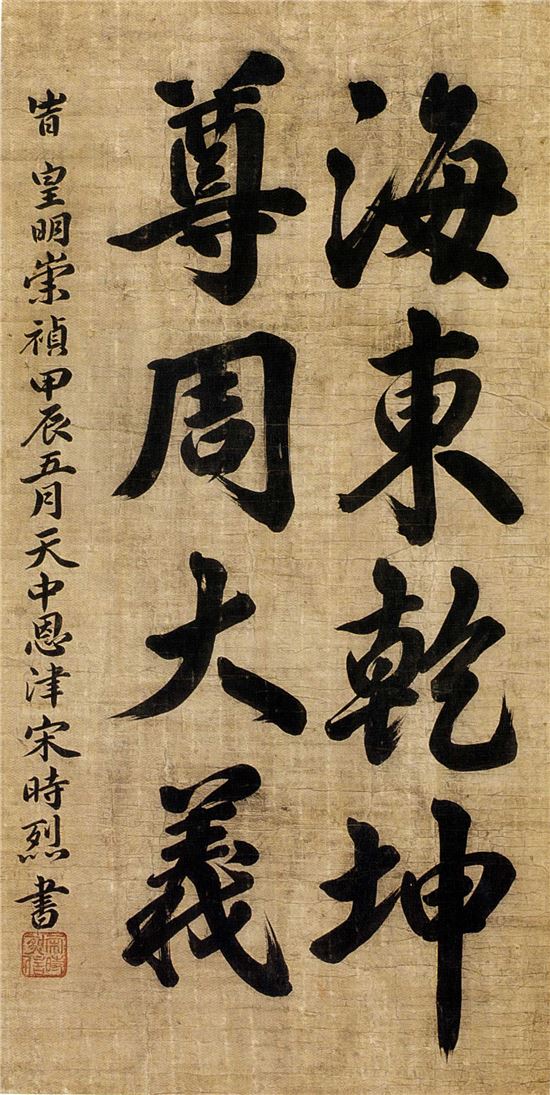 海東乾坤
尊周大義
旹皇明崇禎甲辰五月天中恩津宋時烈書